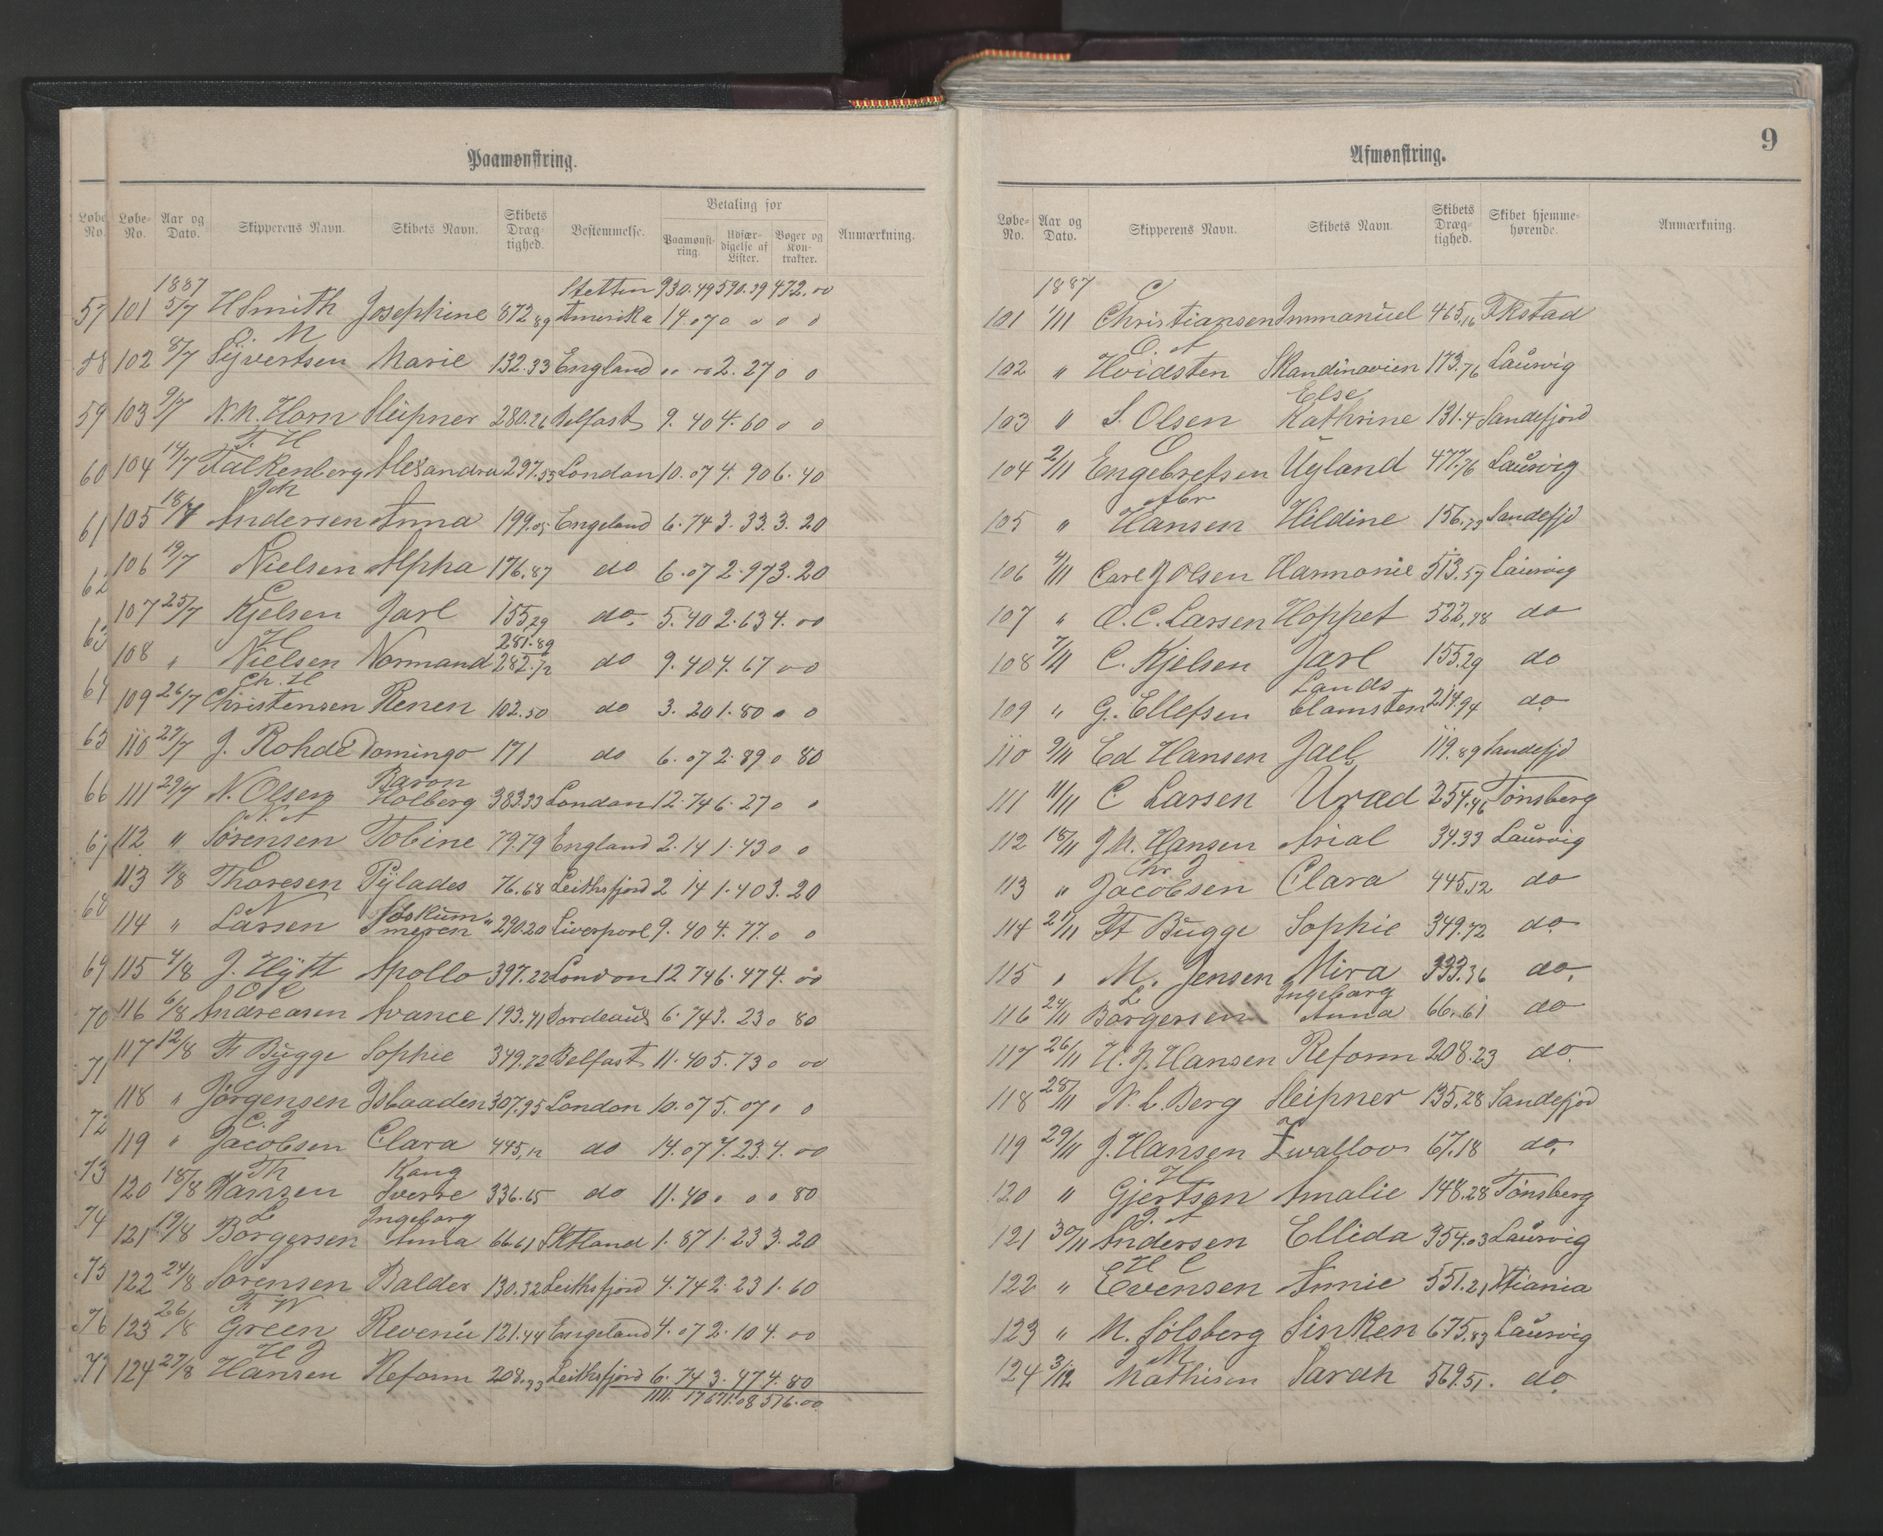 Paamønstring.
Løbe-No. Aar og Dato. Skipperens Navn. Skibets Navn. Skibets Dræg-tighed. Bestemmelse. Betaling for Paamønst-ring. Udfær-digelse af Lister. Bøger og Kon-trakter. Anmærkning.
1887 Stettin 930.49 590.39 472.00
101 5/7 H Smith Josephine 872.89 Amerika 14.07 0 0 0 0
102 8/7 C. M Syvertsen Marie 132.33 England 2.27 0 0
103 9/7 N. N. Horn Sleipner 280.26 Belfast 9.40 4.60 0 0
104 14/7 F. H Falkenberg Alexandra 297.55 London 10.07 4.90 6.40
105 18/7 Joh Andersen Anna 199.05 Engeland 6.74 3.33 3.20
106 19/7 Nielsen Alpha 176.87 do 6.07 2.97 3.20
107 25/7 C Kjelsen Jarl 155.29 do. 5.40 2.63 4.00
108 " H Nielsen Normand 281.89 282.72 do 9.40 4.67 00
109 26/7 Ch. H Christensen Renen 102.50 do 3.20 1.80 0 0
110 27/7 J. Rohde Domingo 171 do 6.07 2.89 0 80
111 29/7 N. Olsen Baron Holberg 383.33 London 12.74 6.27 0 0
112 " Sørensen Tobine 79.79 England 2.14 1.43 0 0
113 1/8 O Thoresen Pylades 76.68 Leithsfjord 2 14 1.40 3.20
114 " N Larsen 290.20 Liverpool 9.40 4.77. 0 0
115 4/8 J. Hÿtt Apollo 397.22 London 12 74 6.47 4.00
116 6/8 O C Andreasen Avance 193.41 Bordeaux 6.74 3.23 0 80
117 12/8 Fr Bugge Sophie 349.72 Belfast 11.40 5.73 0 00
118 " Jørgensen Isbaaden 307.95 London 10.07 5.07 0 0
119 " C. J Jacobsen Clara 445,12 do 14.07 7.23 4.00
120 18/8 Th Hanzen Kong Sverre 336.65 do 11.40 0 0 0 80
121 19/8 L Borgersen Ingeborg Anna 66.61 Sktland 1.87 1.23 3.20
122 24/8 Sørensen Balder 130.32 Leithsfjord 4.74 2.23 1.60
123 26/8 F. W Green Revenü 121.44 Engeland 4.07 2.10 4.00
124 27/8 H J Hansen Reform 208.33 Leithsfjord 6.74 3.47 4.80
1111.17 671.08 576.00
57
58
59
60
61
62
63
64
65
66
67
68
69
70
71
72
73
74
75
76
77
9
Afmønstring.
Løbe-No. Aar og Dato. Skipperens Navn. Skibets Navn. Skibets Dræg-tighed. Skibet hjemme-hørende. Anmærkning.
1887
101 1/11 C Christiansen Immanuel 465.16 Fkstad
102 " O. A Hvidsten Skandinavien 173.76 Laurvig
103 " S. Olsen Else Kathrine 131.4 Sandefjord
104 2/11 O Engebretsen Ugland 477.76 Laurvig
105 " Abr Hansen Hildine 156.73 Sandefjd
106 4/11 Carl J Olsen Harmonie 513.57 Laurvig
107 " O. C. Larsen Hoppet 522.78 do
108 7/11 C. Kjelsen Jarl 155.29 do
109 " G. Ellefsen Lands blomsten 214.94 do.
110 9/11 Ed Hansen Jael 119.89 Sandefjd
111 11/11 C Larsen Uræd 254.46 Tønsberg
112 18/11 J M. Hansen Arial 34.33 Laurvig
113 " Chr. J Jacobsen Clara 445.12 do
114 21/11 Fr Bugge Sophie 349.72 do.
115 " M. Jensen Mira 333.36 do.
116 24/11 L Borgersen Ingeborg Anna 66.61 do
117 26/11 H. J. Hansen Reform 208.23 do.
118 28/11 N. C Berg Sleipner 135.28 Sandefjord
119 29/11 J. Hansen Zwalloo 67.18 do.
120 " H Gjertsen Amalie 148.28 Tønsberg
121 30/11 J. A Andersen Ellida 354.03 Laurvig
122 " H C Evensen Annie 551.21 Xtiania
123 " M. Sølsberg Sinken 675.83 Laurvig
124 3/12 M Mathisen Sarah 569.51. do.